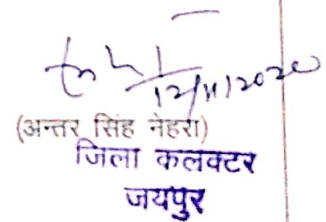 12/11/2020
(अन्तर सिंह नेहरा)
जिला कलक्टर
जयपुर